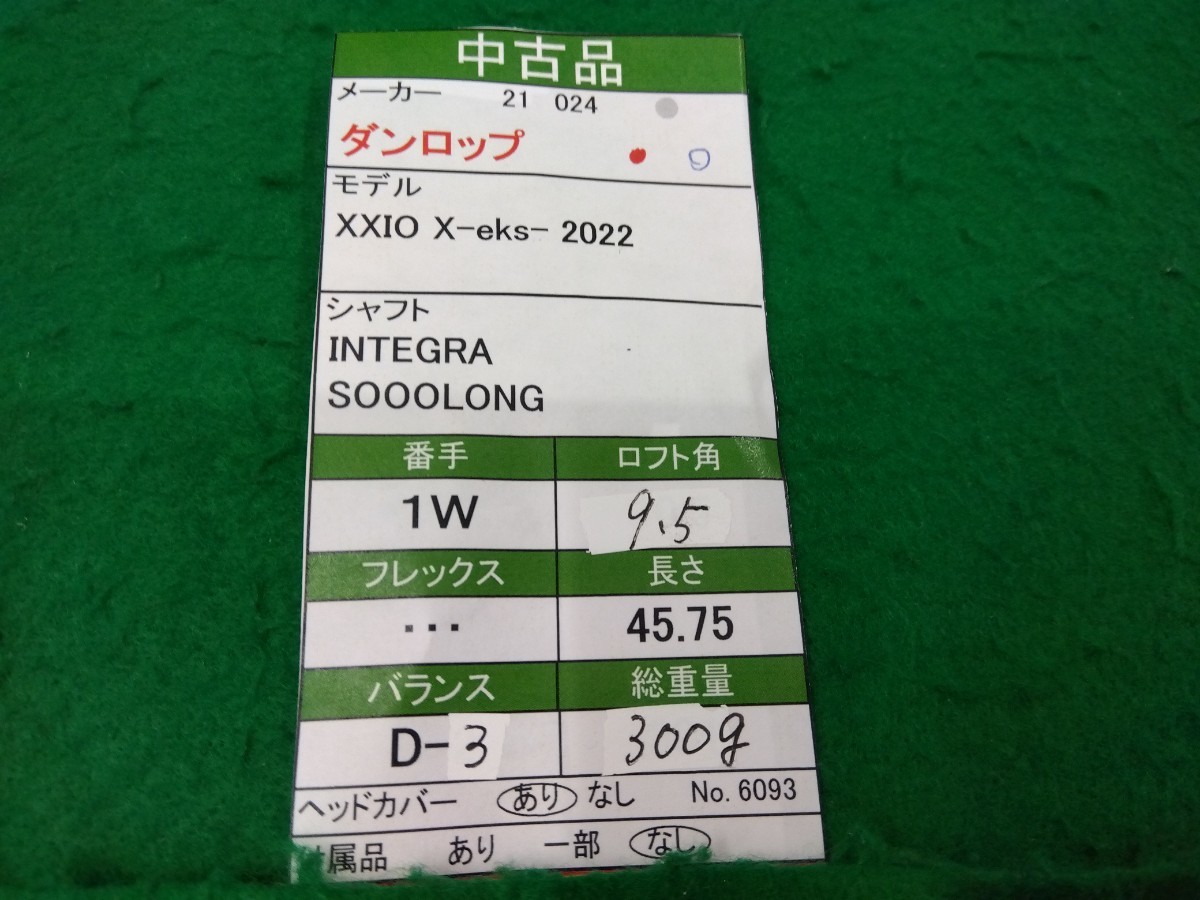 中古品
メーカー 21 024
ダンロップ
モデル
XXIO X-eks- 2022
シャフト
INTEGRA
SOOOLONG
番手 ロフト角
1W 9.5
フレックス 長さ
... 45.75
バランス 総重量
D-3 300g
ヘッドカバー あり なし No. 6093
属品 あり 一部 なし